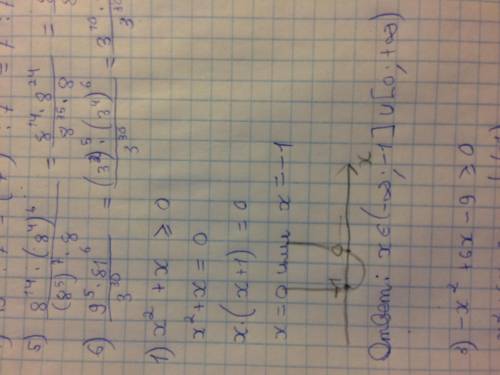 5) 8¹⁴ · (8⁴)⁶ / (8⁵)⁷ · 8 = 8¹⁴ · 8²⁴ / 8³⁵ · 8 =
6) 9⁵ · 81⁶ / 3³⁰ = (3²)⁵ · (3⁴)⁶ / 3³⁰ = 3¹⁰ ·
1) x² + x ≥ 0
x² + x = 0
x · (x + 1) = 0
x = 0 или x = -1
-1 0 x
Ответ: x ∈ (-∞; -1] ∪ [0; +∞)
3) -x² + 6x - 9 ≥ 0